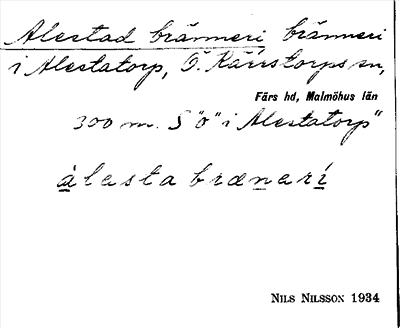 Alestad bränneri bränneri
i Alestatorp, Ö. Kärrstorps sn,
Färs hd, Malmöhus län
300 m. S "o" i Alestatorp"
àlesta brænerí
Nils Nilsson 1934